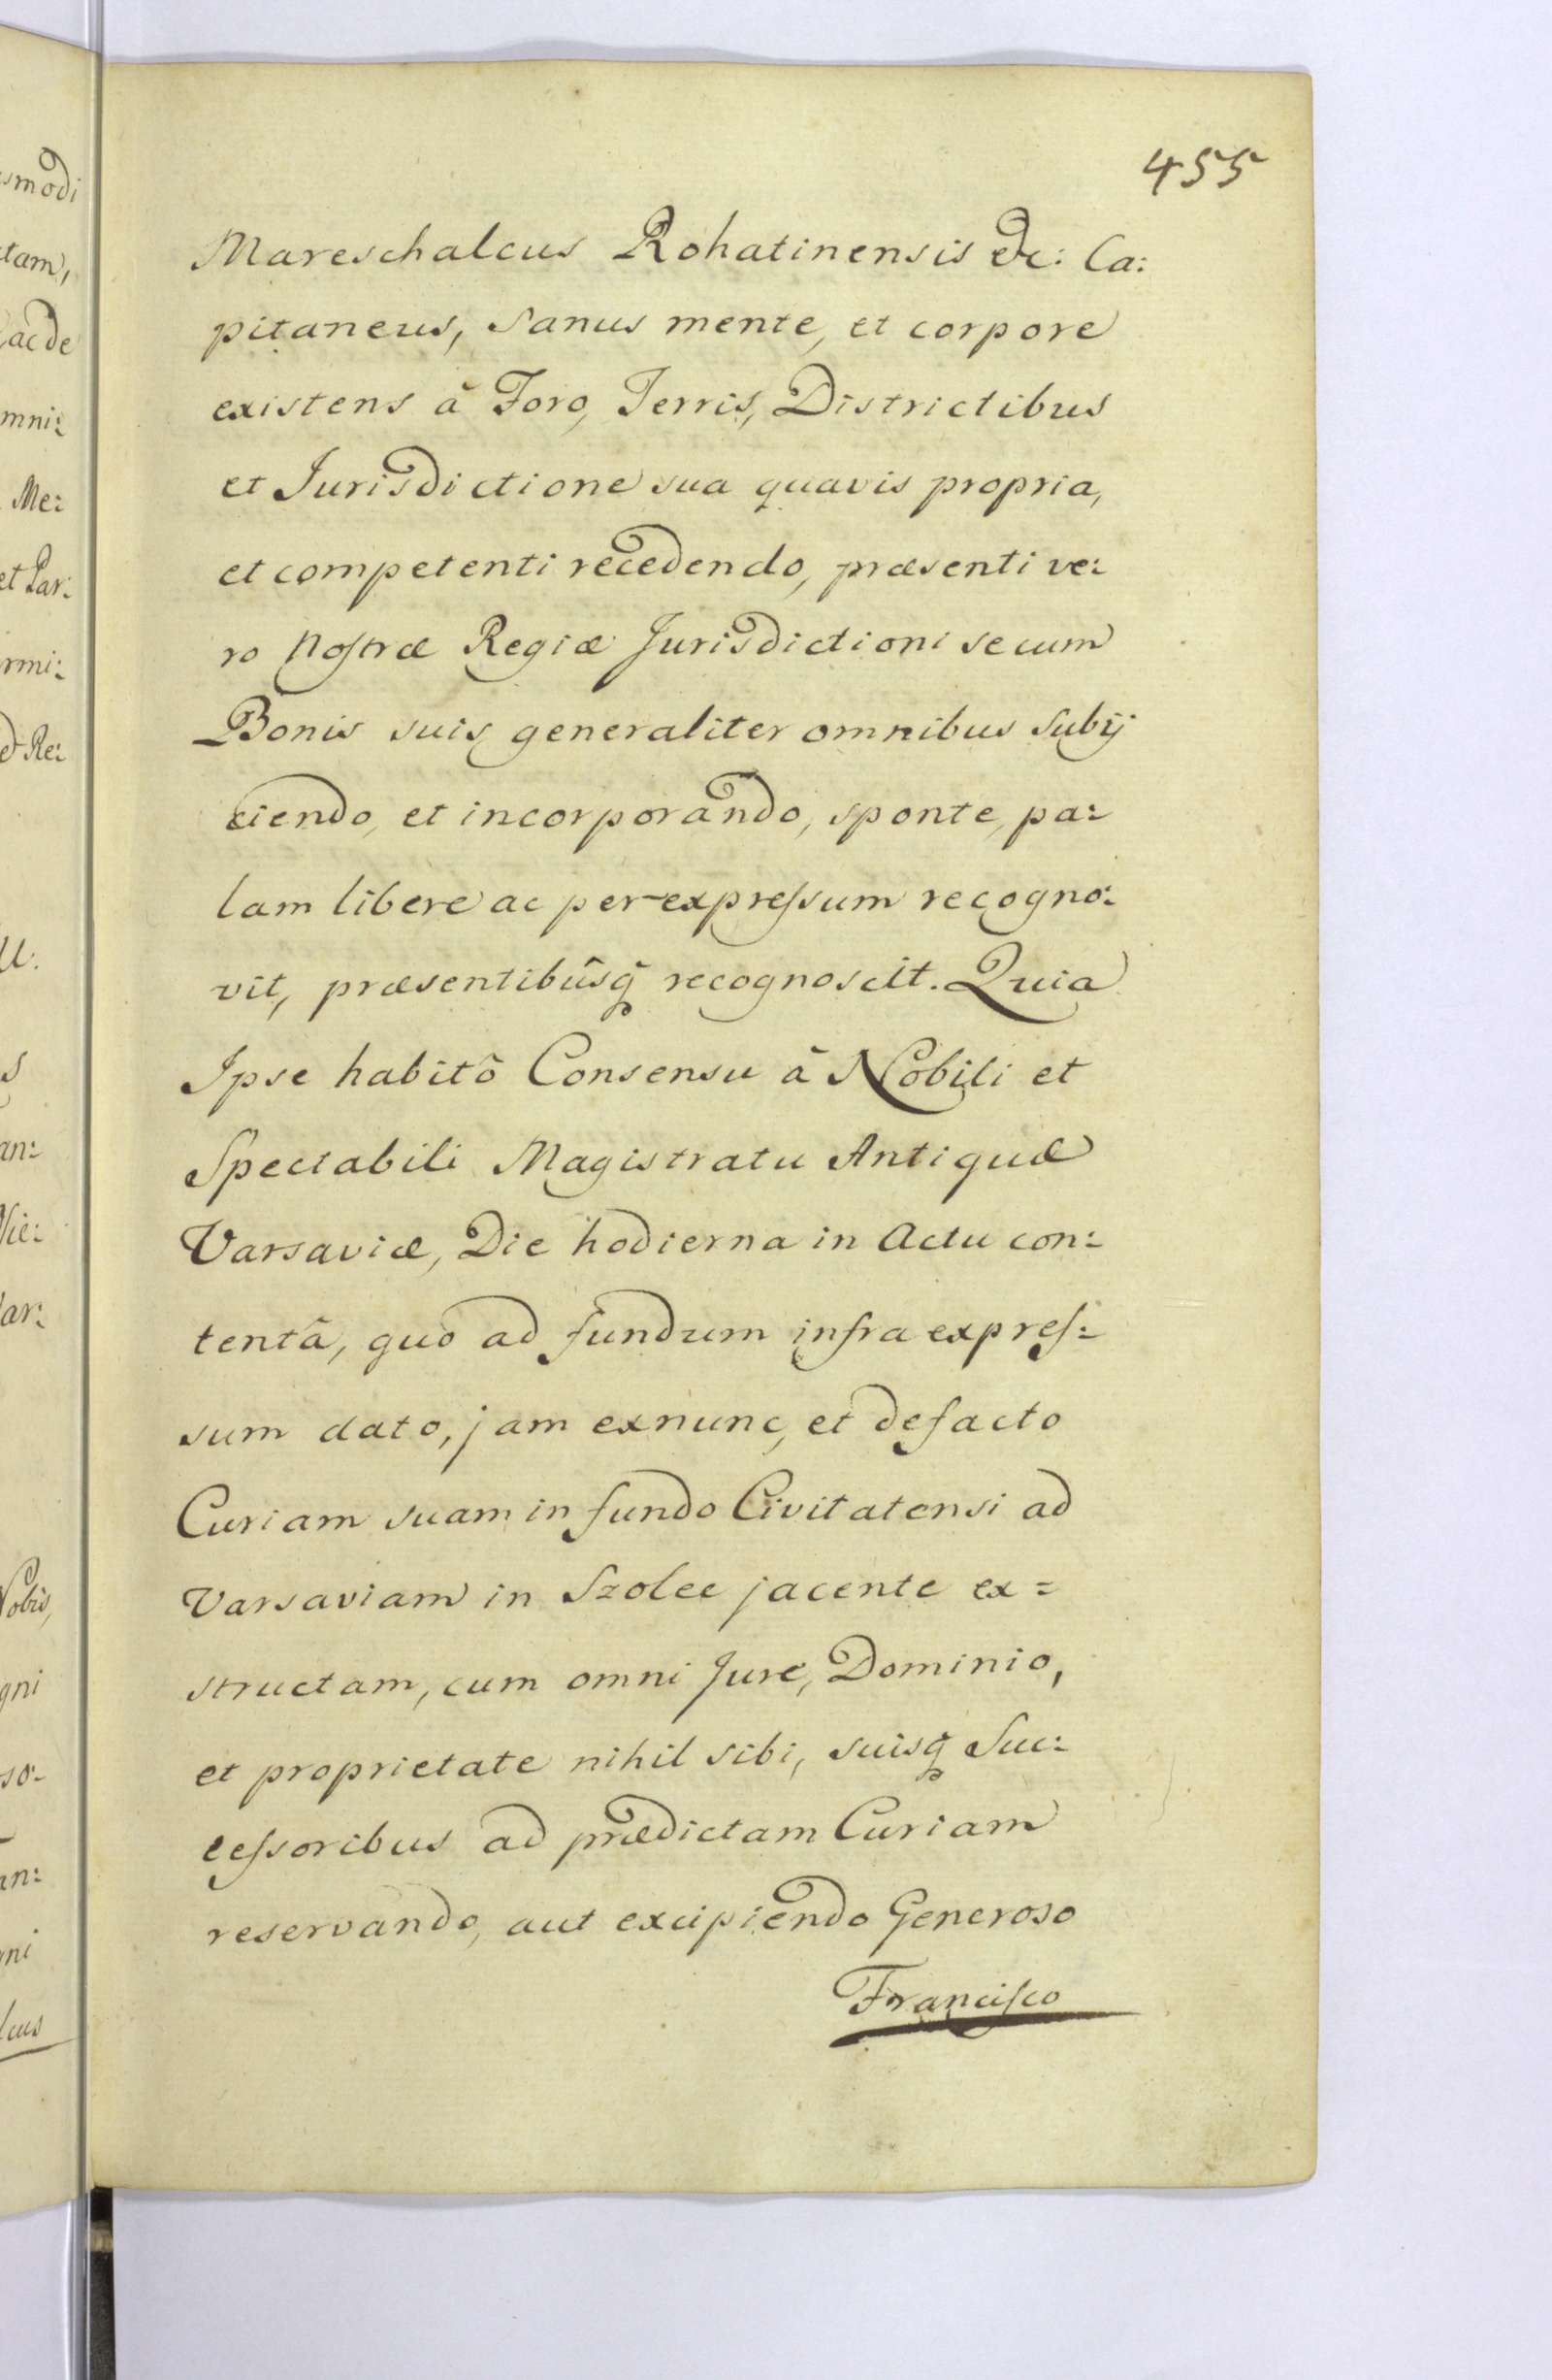 455
Mareschalcus Rohatinensis &c: Ca:
pitaneus, sanus mente, et corpore
existens à Foro, Terris, Districtibus
et Jurisdictione sua quavis propria,
et competenti recedendo, præsenti ve:
ro Nostræ Regiæ Jurisdictioni se cum
Bonis suis generaliter omnibus subij
ciendo, et incorporando, sponte, pa:
lam libere ac per expressum recogno:
vit, præsentibûsq̃ recognoscit. Quia
Ipse habitô Consensu à Nobili et
Spectabili Magistratu Antiquæ
Varsaviæ, Die hodierna in Actu con:
tentâ, quo ad fundum infra expres:
sum dato, jam exnunc, et defacto
Curiam suam in fundo Civitatensi ad
Varsaviam in Szolec jacente ex=
structam, cum omni Jure, Dominio,
et proprietate nihil sibi, suisq̃ Suc:
cessoribus ad prædictam Curiam
reservando, aut excipiendo Generoso
Francisco
smodi
tam,
ac de
mni:
Me:
et Par:
rmi:
d Re:
U.
s
an:
Nie:
ar:
Nobis,
gni
so:
an:
ni
lcus